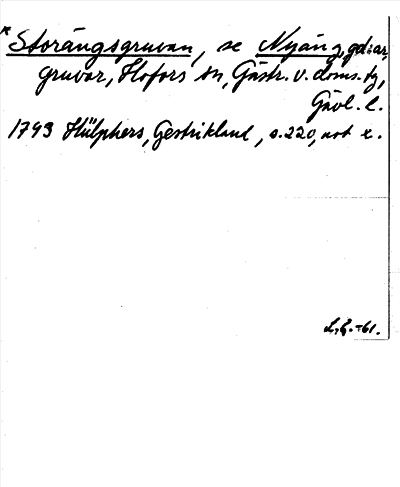 *Storängsgruvan, se Nyäng, gd:ar,
gruvor, Hofors sn, Gästr. v. doms.tg,
Gävl. l.
1793 Hülphers, Gestrikland, s.220, not x.
L.L.-61.